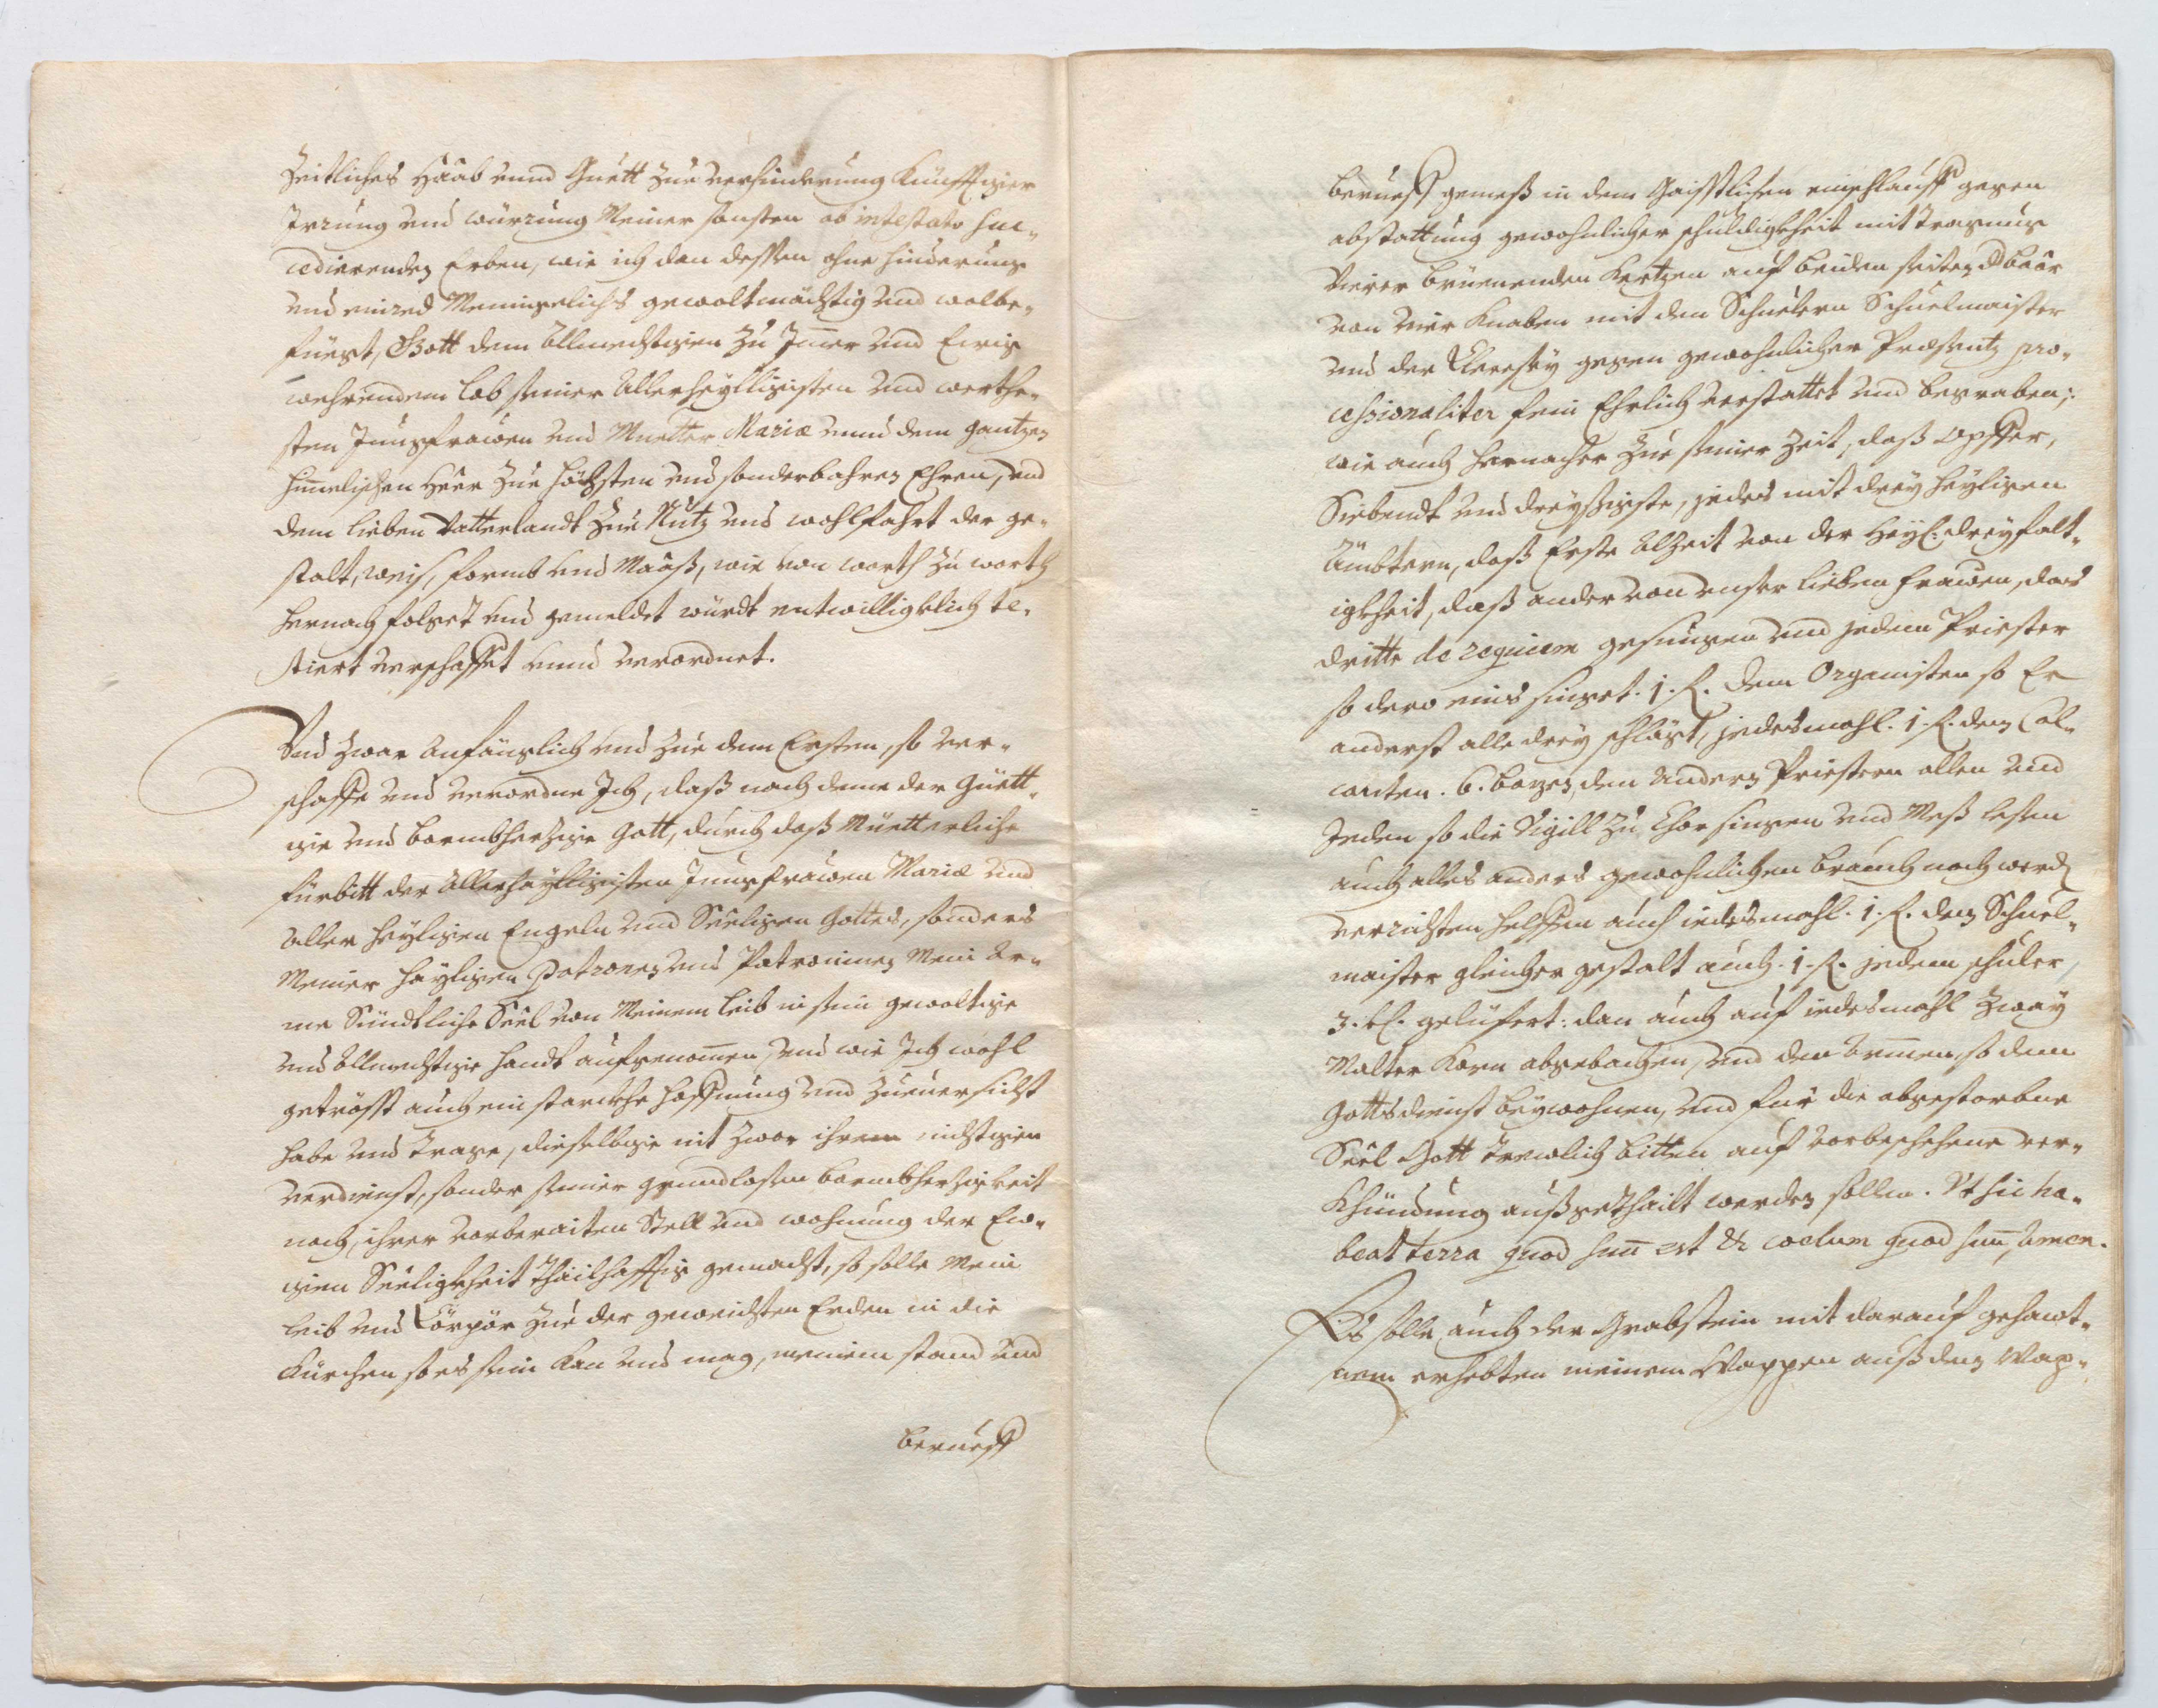 Zeitliches Haab unnd Guett zue verhinderung Künfftiger
Irrung und würrung Meiner sonsten ab intestato suc-
cedierenden Erben, wie ich dan dessen ohne hinderung
und Meniglichs gewaltmächtig und wolbe-
fuegt, Gott dem Allmechtigen zu Im̄er und Ewig
wehrendem lob seiner Allerheylligisten und werthe-
sten Jungfrawen und Muetter Mariæ unnd dem gantzen
him̄elischen Heer zue höchsten und sonderbahren Ehren, und
dem lieben Vatterlandt zue Nutz und wohlfahrt der ge-
stalt, weis, formb und Maaß, wie von worth zu worth
hernach folget und gemeldet würdt guetwilligklich te-
stiert verschafft unnd verordnet.
Und zwar Anfänglich und zue dem Ersten, so ver-
schaffe und verordne Ich, daß nach deme der Güett-
ige und barmbherzige Gott, durch daß Müetterliche
fürbitt der Allerheylligisten Jungfrawen Mariæ und
aller heyligen Engeln und Seeligen Gottes, sonders
Meiner heyligen Patronen und Patroninen Mein Ar-
me Sündtliche Seel von Meinem leib in sein gewaltige
und Allmechtige handt aufgenom̄en, und wie Ich wohl
getröst auch ein starckhe hoffnung und zueversicht
habe und trage, dieselbige nit zwar ihrem nichtigen
verdienst, sonder seiner grundlosen barmbherzigkeit
nach, ihrer vorberaiten Stell und wohnung der Ew-
igen Seeligkheit theilhafftig gemacht, so solle Mein
leib und Cörpör zue der geweichten Erden in die
Kürchen so es sein kan und mag, meinem stand und
berueff
berueff gemeß in dem Gaistlichen gegen
abstattung gewohnlicher schuldigkheit mit tragung
vierer brünenden Kertzen auf beiden seiten d baar
von vier Knaben mit den Schuelern Schuelmaister
und der Clerisey gegen gewohnlicher Præsentz pro-
cessionaliter fein Ehrlich bestattet und begraben;
wie auch hernacher zue seiner zeit, daß opffer,
Siebendt und dreyßigiste, jedes mit drey heyligen
Ämbtern, daß Erste Alzeit von der Heyl: dreyfalt-
igkheit, daß ander von unser lieben frawen, das
dritte de requiem gesungen und jedem Priester
so dero eins singet. 1. fl. dem Organisten so Er
anderst alle drey schlägt, jedesmahl. 1 fl. dem Cal-
canten. 6. bazen, den andern Priestern allen und
Jeden so die Vigill zu Chor singen und Meß lesen
auch alles anders gewohnlichen brauch nach werdē
verrichten helffen auch jedesmahl. 1. fl. dem Schuel-
maister gleicher gestalt auch. 1. fl. jedem schüler,
3. bl. gelüfert: dan auch auf jedesmahl zway
Malter Korn abgebachen, und den Armen, so dem
Gottsdienst beywohnen, und für die abgestorbne
Seel Gott trewlich bitten auf vorbeschehene ver-
khündung außgethailt werden sollen. Ut sic ha-
beat terra quod suū est & coelum quod suū, Amen.
Es solle auch der Grabstein mit darauf gehawt-
nem erhebten meinem Wappen auß dem Wap-